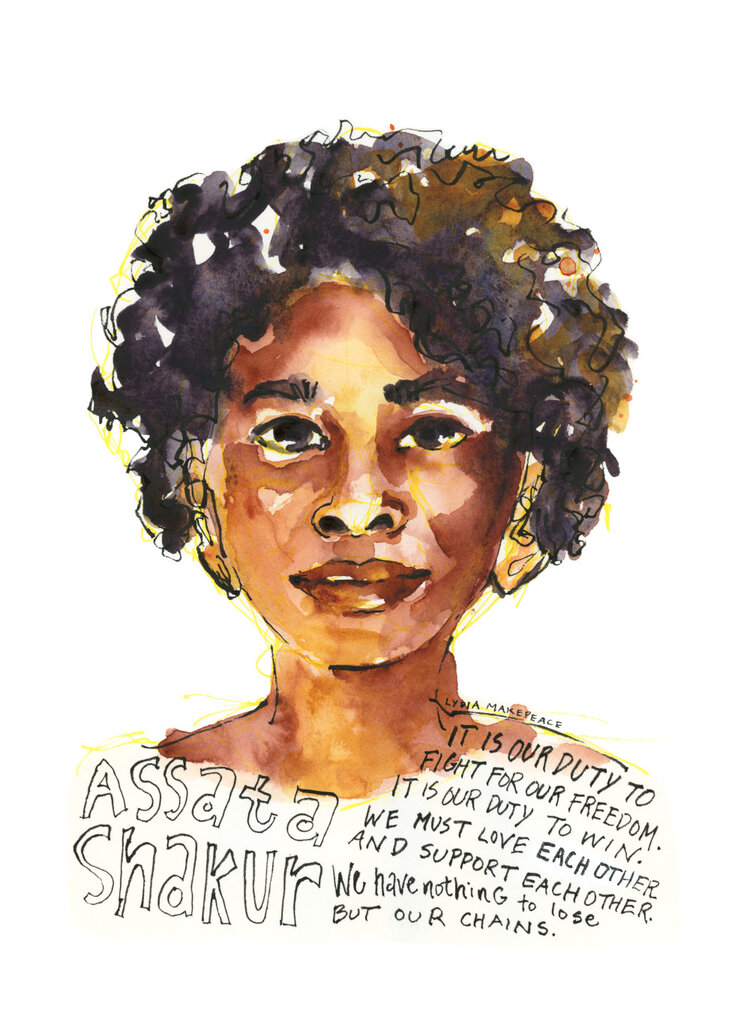 LYDIA MAKEPEACE
ASSata
Shakur
IT IS OUR DUTY TO
FIGHT FOR OUR FREEDOM.
IT IS OUR DUTY TO WIN.
WE MUST LOVE EACH OTHER
AND SUPPORT EACH OTHER.
We have nothing to lose
BUT OUR CHAINS.